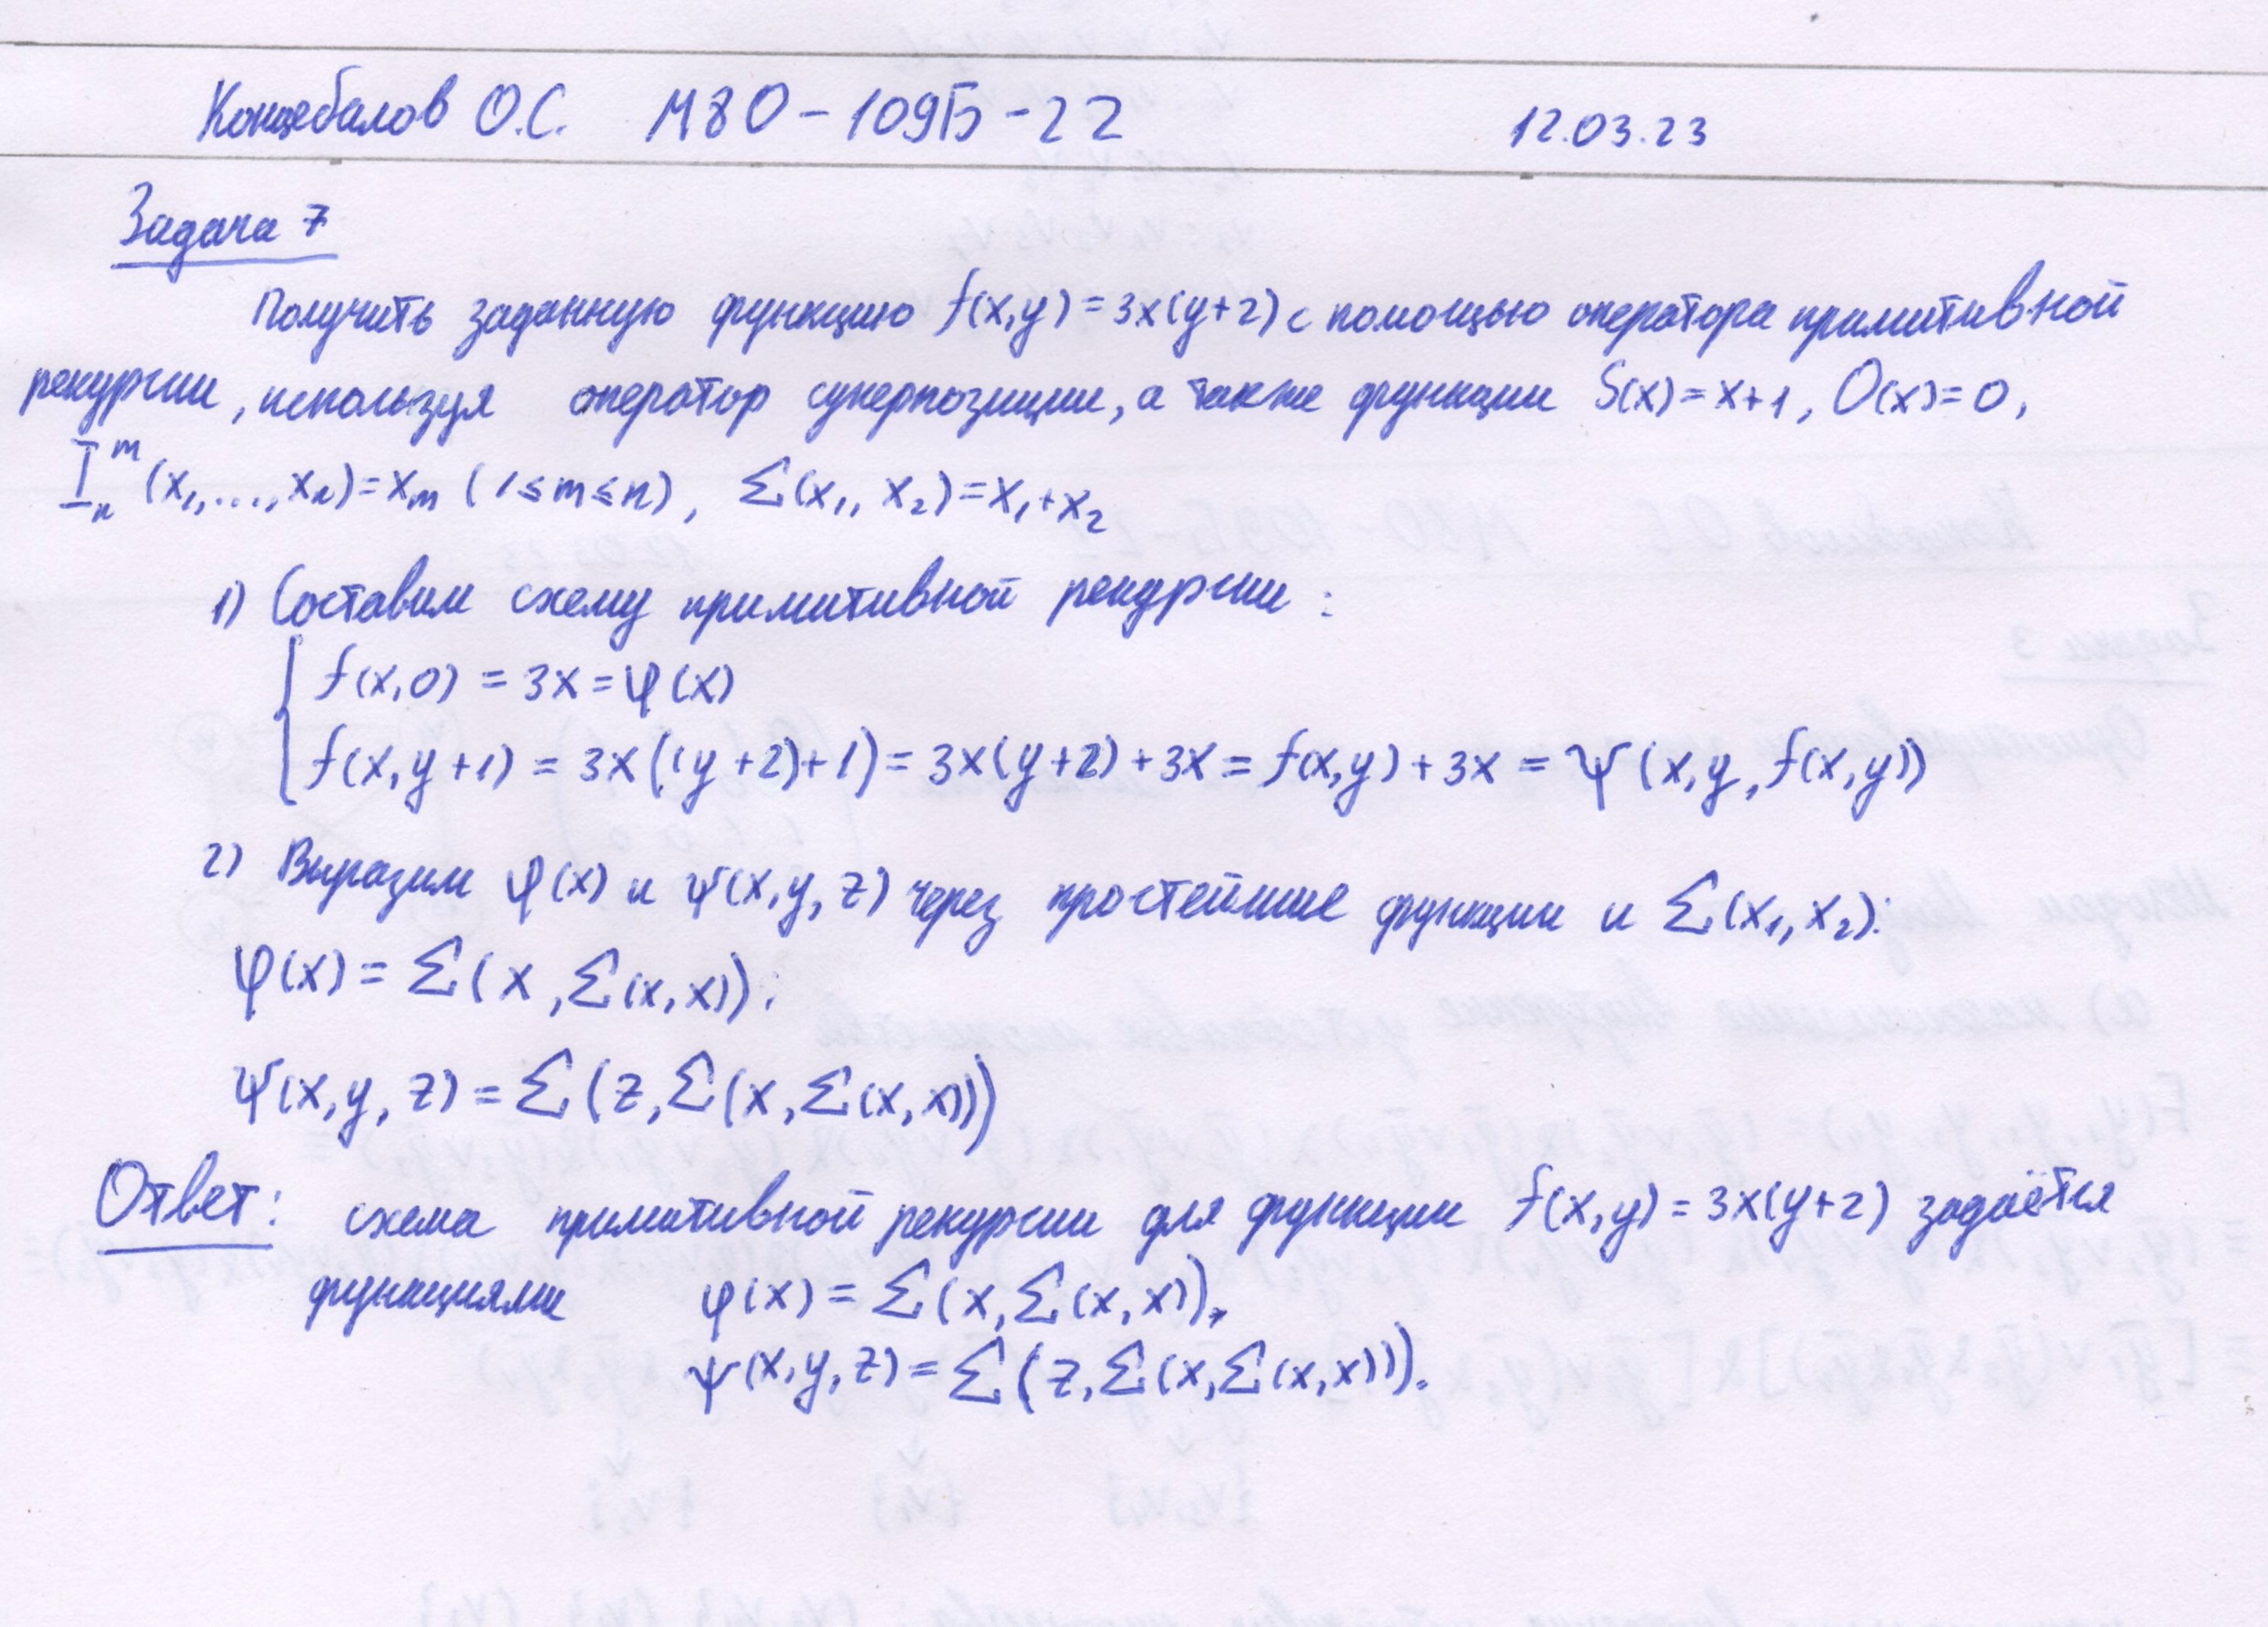 Концебалов О.С. М8О-109Б-22 12.03.23
Задача 7
Получить заданную функцию f(x,y)=3x(y+2) с помощью оператора примитивной
рекурсии, используя оператор суперпозиции, а также функции S(x)=x+1, O(x)=0,
Iₙᵐ(x₁,...,xₙ)=xₘ (1≤m≤n), Σ(x₁, x₂)=x₁+x₂
1) Составим схему примитивной рекурсии:
f(x,0) = 3x=φ(x)
f(x,y+1) = 3x((y+2)+1) = 3x(y+2)+3x = f(x,y)+3x = ψ(x,y,f(x,y))
2) Выразим φ(x) и ψ(x,y,z) через простейшие функции и Σ(x₁,x₂):
φ(x) = Σ(x,Σ(x,x));
ψ(x,y,z) = Σ(z,Σ(x,Σ(x,x)))
Ответ: схема примитивной рекурсии для функции f(x,y)=3x(y+2) задаётся
функциями φ(x) = Σ(x,Σ(x,x)),
ψ(x,y,z) = Σ(z,Σ(x,Σ(x,x))).